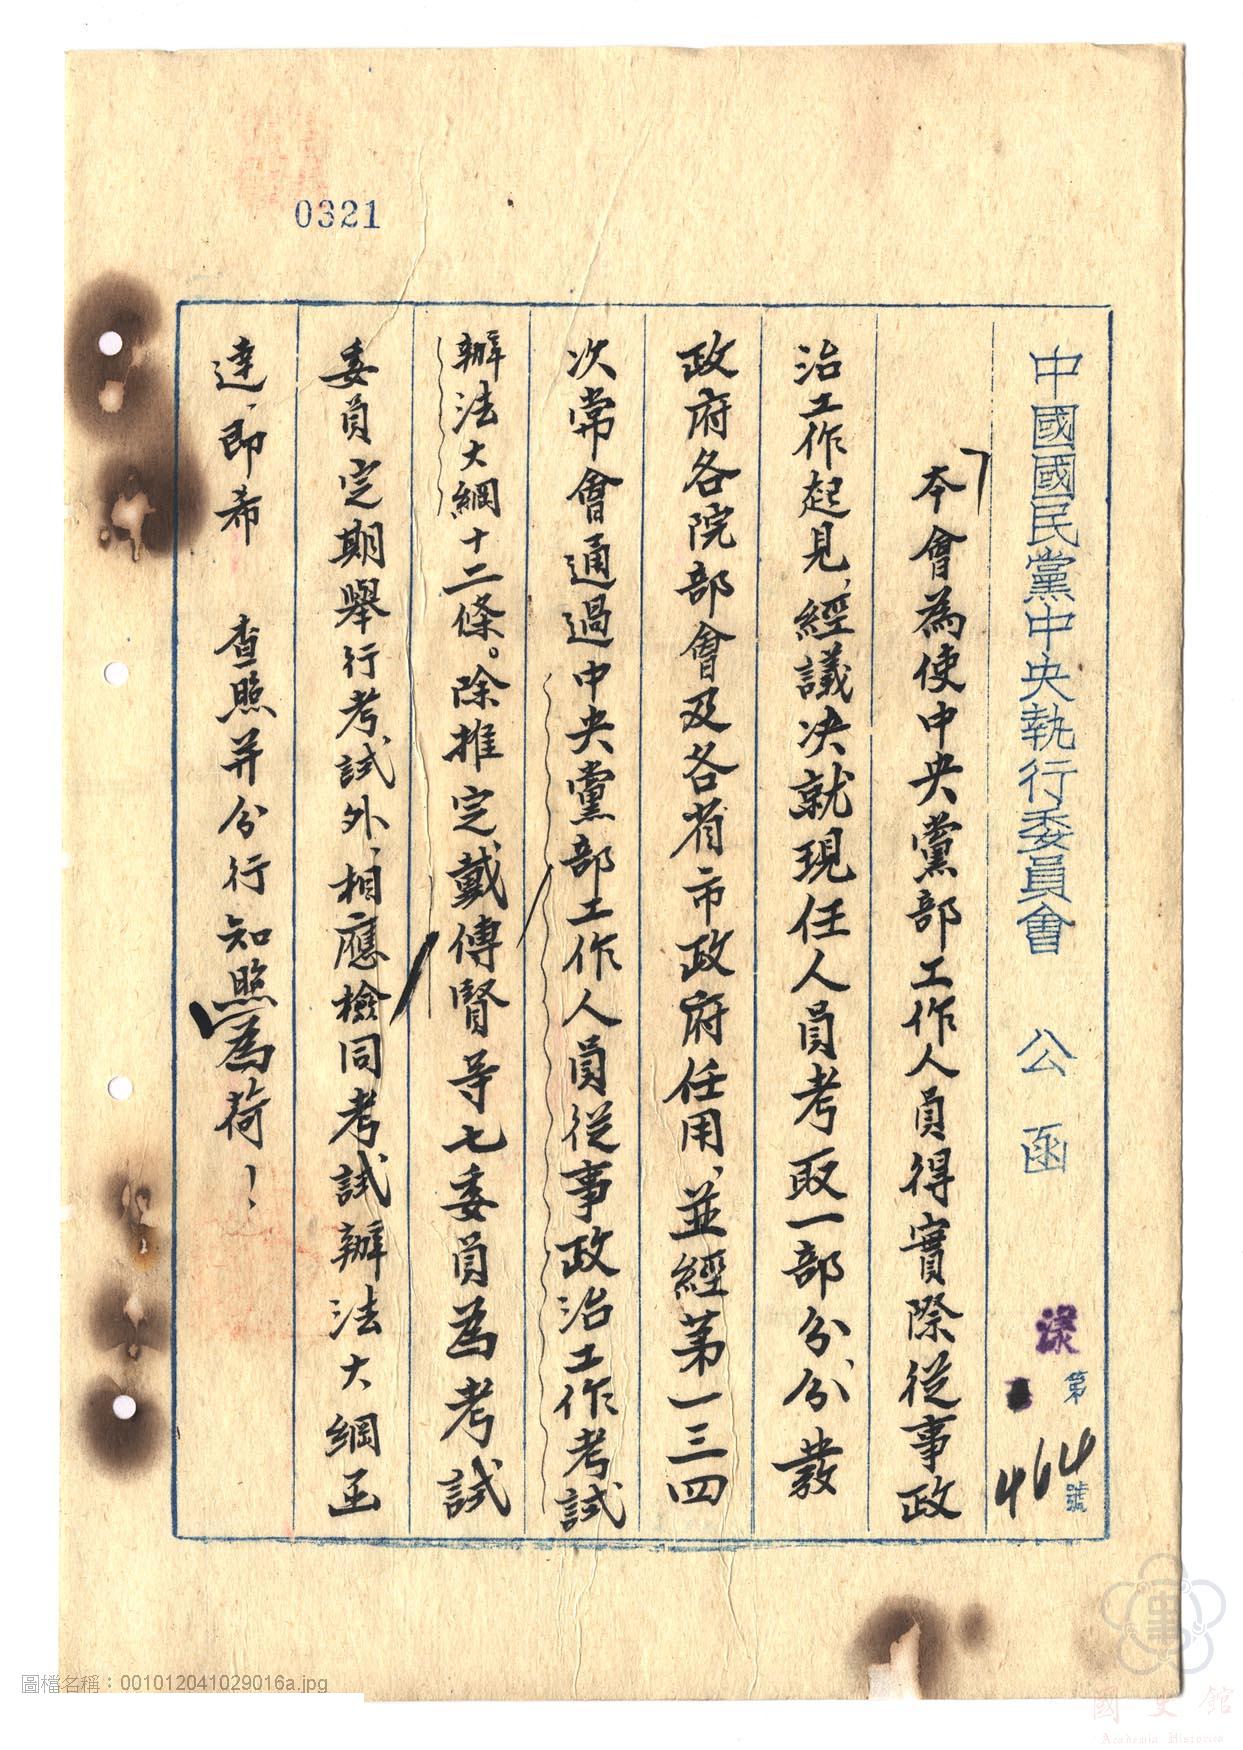 0321
中國國民黨中央執行委員會 公函
渝 第464號
本會為使中央黨部工作人員得實際從事政
治工作起見、經議決就現任人員考取一部分、分發
政府各院部會及各省市政府任用、並經第一三四
次常會通過中央黨部工作人員從事政治工作考試
辦法大綱十二條。除推定戴傳賢等七委員為考試
委員定期舉行考試外、相應檢同考試辦法大綱函
達、即希 查照并分行知照為荷！
圖檔名稱：001012041029016a.jpg
國史館
Academia Historica